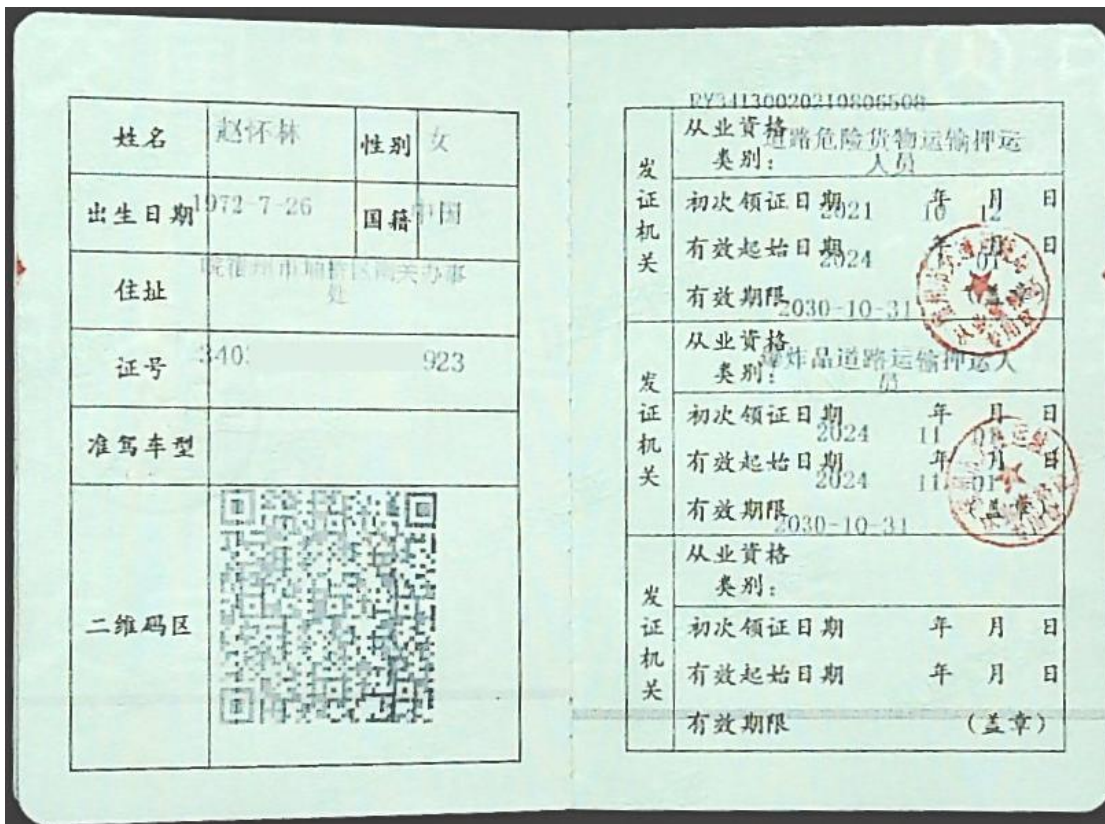 姓名 赵怀林 性别 女
出生日期 1972-7-26 国籍 中国
住址 皖宿州市埇桥区南关办事
处
证号 340 923
准驾车型
二维码区
RY34130020210806508
发证机关
从业资格
类别:
道路危险货物运输押运
人员
初次领证日期 2021 年 10 月 12 日
有效起始日期 2024 年 月 01 日
有效期限 2030-10-31
发证机关
从业资格
类别:
爆炸品道路运输押运人
员
初次领证日期 2024 年 11 月 01 日
有效起始日期 2024 年 11 月 01 日
有效期限 2030-10-31 (盖章)
发证机关
从业资格
类别:
初次领证日期 年 月 日
有效起始日期 年 月 日
有效期限 (盖章)